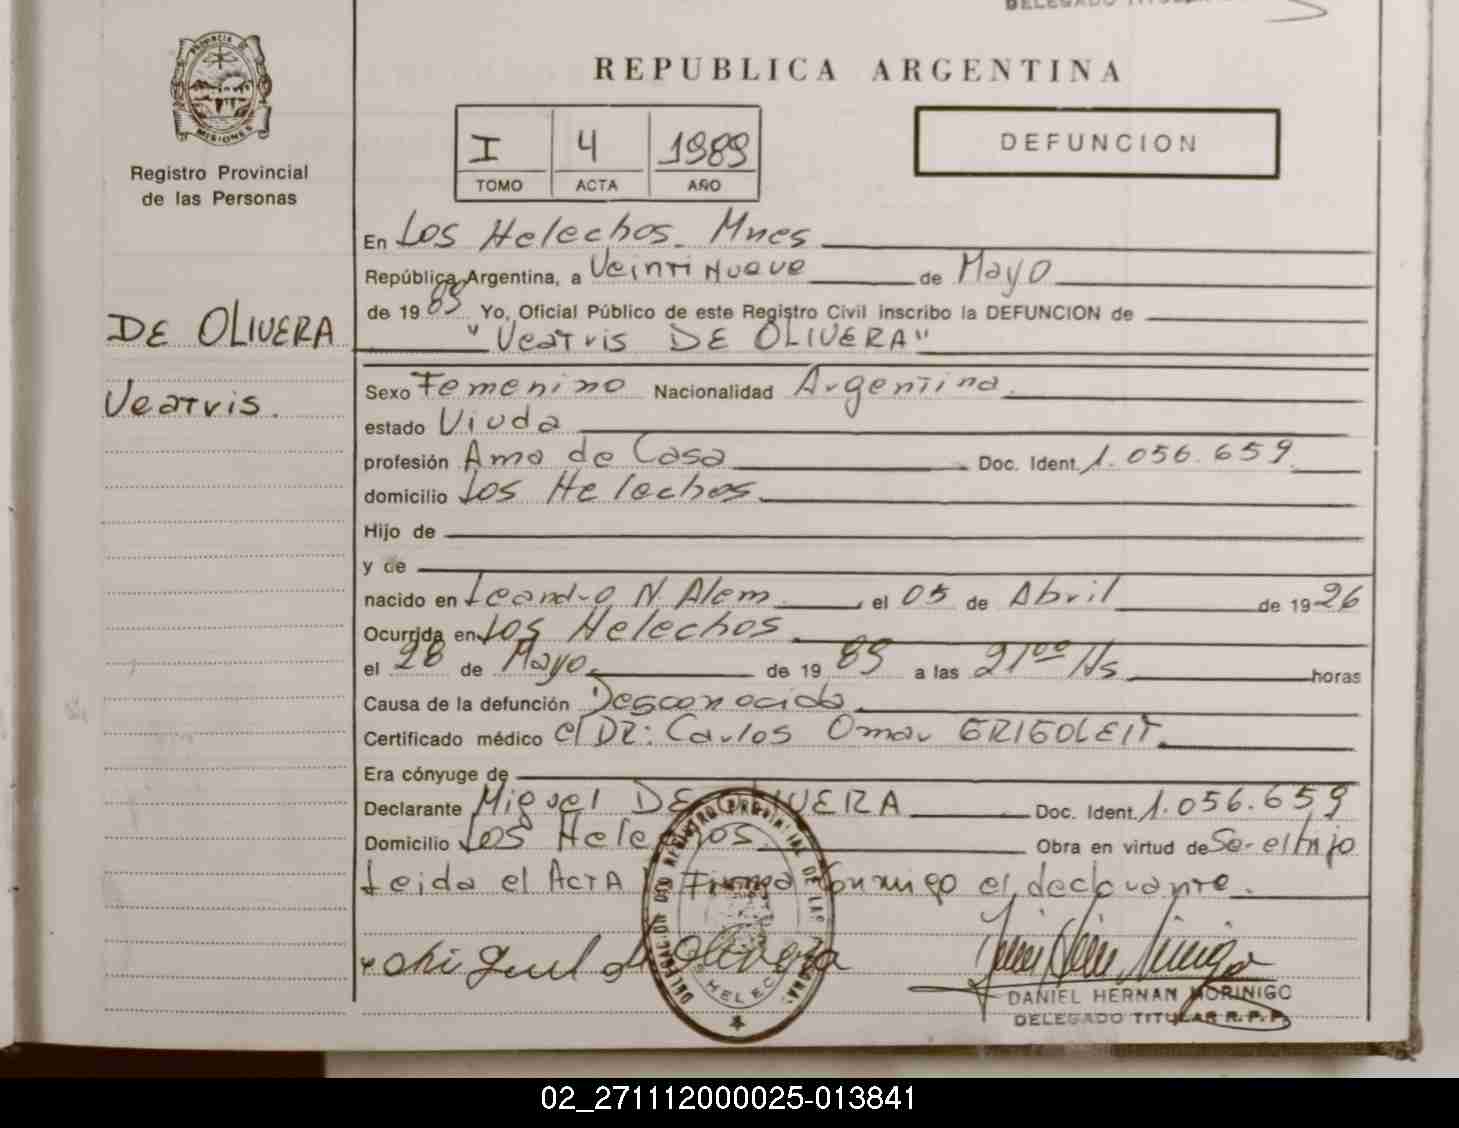 REPUBLICA ARGENTINA
PROVINCIA DE
MISIONES
Registro Provincial
de las Personas
I 4 1989
TOMO ACTA AÑO
DEFUNCION
DE OLIVERA
Veatris.
En Los Helechos. Mnes
República Argentina, a Veintinueve de Mayo
de 1989 Yo, Oficial Público de este Registro Civil inscribo la DEFUNCION de
"Veatris DE OLIVERA"
Sexo Femenino Nacionalidad Argentina.
estado Viuda
profesión Ama de Casa Doc. Ident. 1.056.659
domicilio Los Helechos
Hijo de
y de
nacido en Leandro N. Alem el 05 de Abril de 1926
Ocurrida en Los Helechos
el 28 de Mayo de 1989 a las 21⁰⁰ Hs horas
Causa de la defunción Desconocida
Certificado médico c/DR: Carlos Omar GRIGOLEIT
Era cónyuge de
Declarante Miguel DE OLIVERA Doc. Ident. 1.056.659
Domicilio Los Helechos. Obra en virtud de Se- el hijo
Leida el Acta Firma conmigo el declarante.
Miguel de Olivera
DANIEL HERNAN MORINIGO
DELEGADO TITULAR R.P.P.
02_271112000025-013841